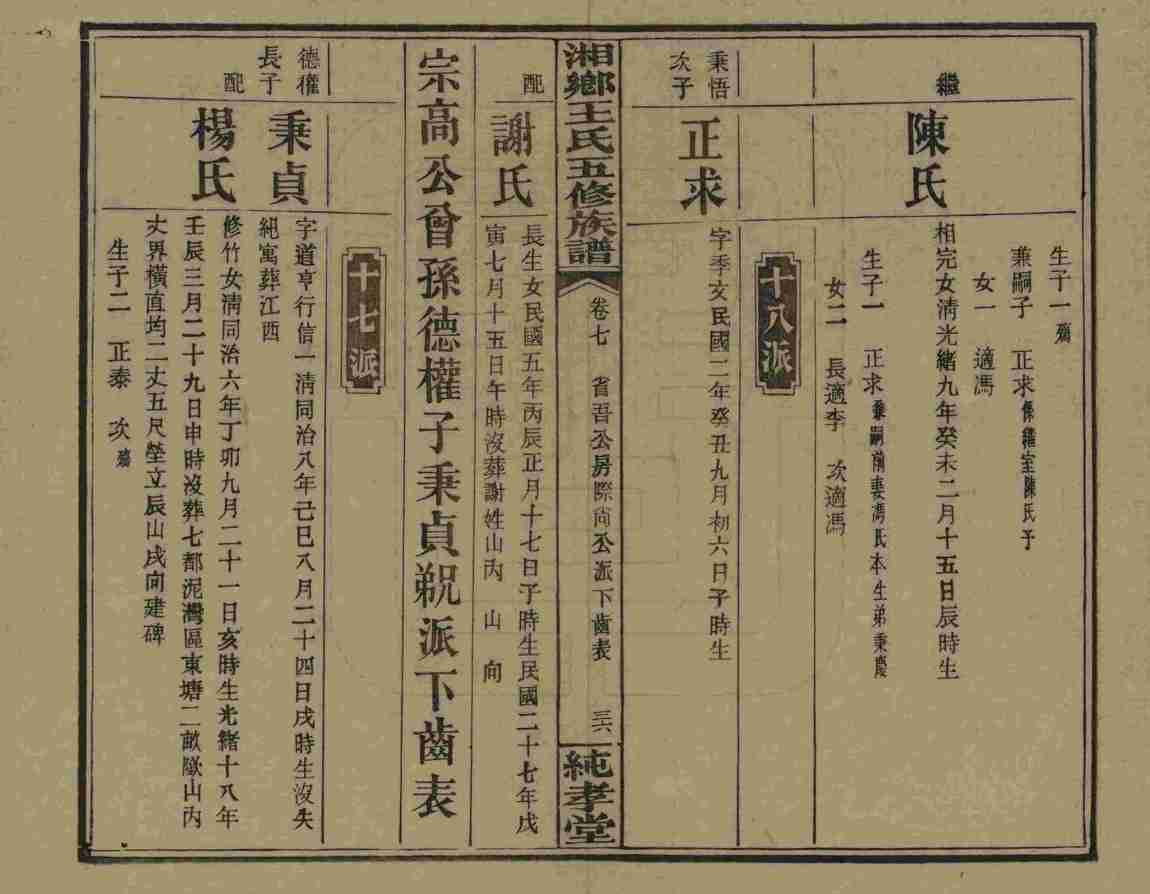 生子一 殤
兼嗣子 正求 係繼室陳氏子
女一 適馮
繼 陳氏
相完女淸光緒九年癸未二月十五日辰時生
生子一 正求 兼嗣前妻馮氏本生弟秉慶
女二 長適李 次適馮
十八派
秉悟次子 正求
字季文民國二年癸丑九月初六日子時生
湘鄉王氏五修族譜 卷七 省吾公房際尚公派下齒表 三六 純孝堂
配 謝氏
長生女民國五年丙辰正月十七日子時生民國二十七年戊
寅七月十五日午時沒葬謝姓山內 山 向
宗高公曾孫德權子秉貞派下齒表
十七派
德權長子 秉貞
字道亨行信一淸同治八年己巳八月二十四日戌時生沒失
純寓葬江西
配 楊氏
修竹女淸同治六年丁卯九月二十一日亥時生光緒十八年
壬辰三月二十九日申時沒葬七都泥灣區東塘二畝墩山內
丈界橫直均二丈五尺塋立辰山戌向建碑
生子二 正泰 次殤